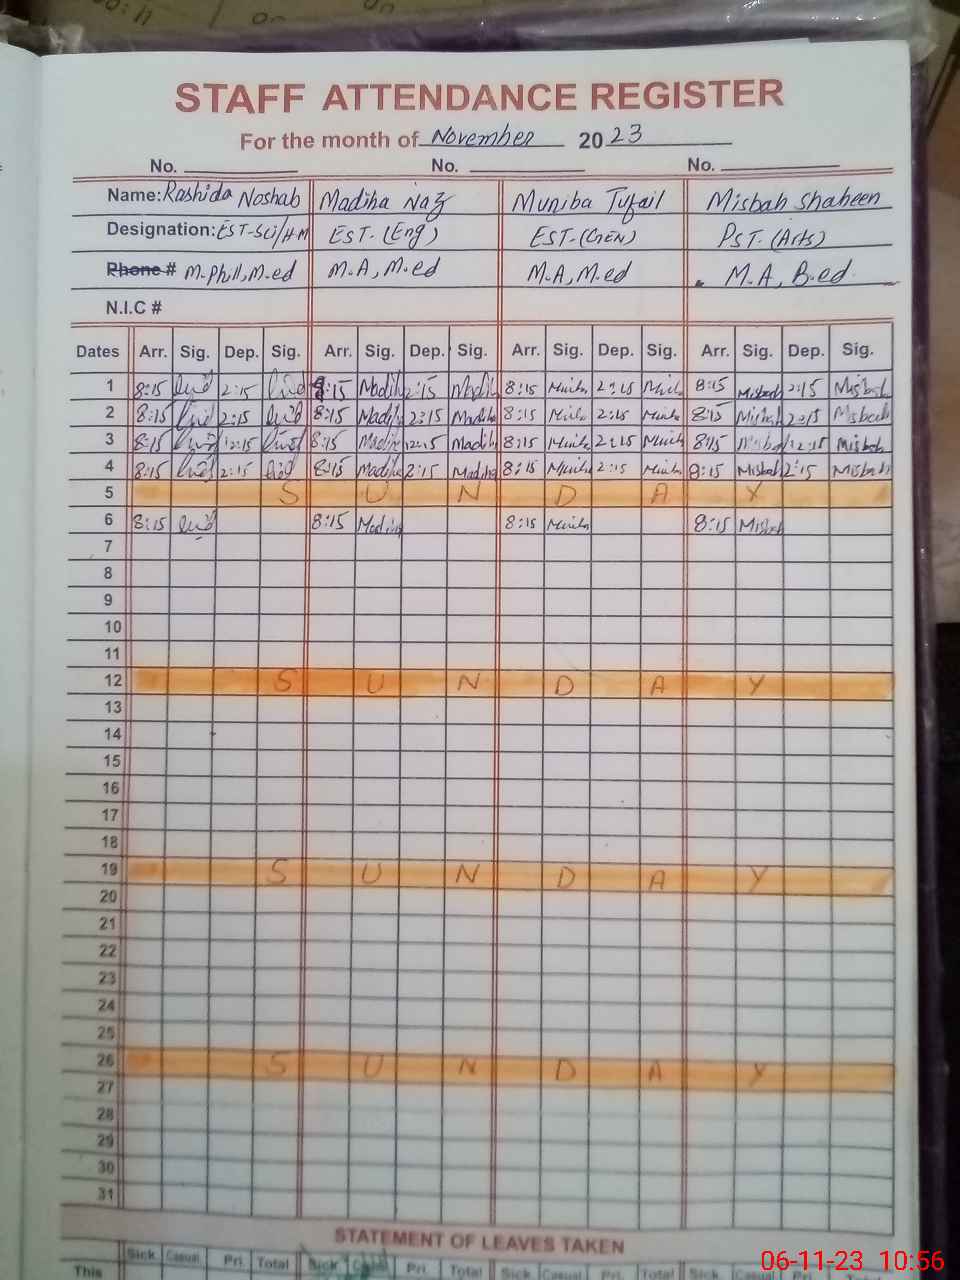 STAFF ATTENDANCE REGISTER
For the month of November 2023
No. No. No.
Name: Rashida Noshab Madiha Naz Muniba Tufail Misbah Shaheen
Designation: EST-Sci/H.M EST. (Eng) EST-(GEN) PST. (Arts)
Phone # M.Phill, M.ed M.A, M.ed M.A, M.ed M.A, B.ed.
N.I.C #
Dates Arr. Sig. Dep. Sig. Arr. Sig. Dep. Sig. Arr. Sig. Dep. Sig. Arr. Sig. Dep. Sig.
1 8:15 2:15 8:15 Madiha 2:15 Madiha 8:15 2:15 8:15 Misbah 2:15 Misbah
2 8:15 2:15 8:15 Madiha 2:15 Madiha 8:15 2:15 8:15 Misbah 2:15 Misbah
3 8:15 12:15 8:15 Madiha 12:15 Madiha 8:15 8:15 Misbah 12:15 Misbah
4 8:15 2:15 8:15 Madiha 2:15 Madiha 8:15 2:15 8:15 Misbah 2:15 Misbah
5 S U N D A Y
6 8:15 8:15 Madiha 8:15 8:15 Misbah
7
8
9
10
11
12 S U N D A Y
13
14
15
16
17
18
19 S U N D A Y
20
21
22
23
24
25
26 S U N D A Y
27
28
29
30
31
STATEMENT OF LEAVES TAKEN
Sick Casual Pri. Total Sick Casual Pri. Total Sick Casual Pri. Total Sick Casual Pri.
This
06-11-23 10:56